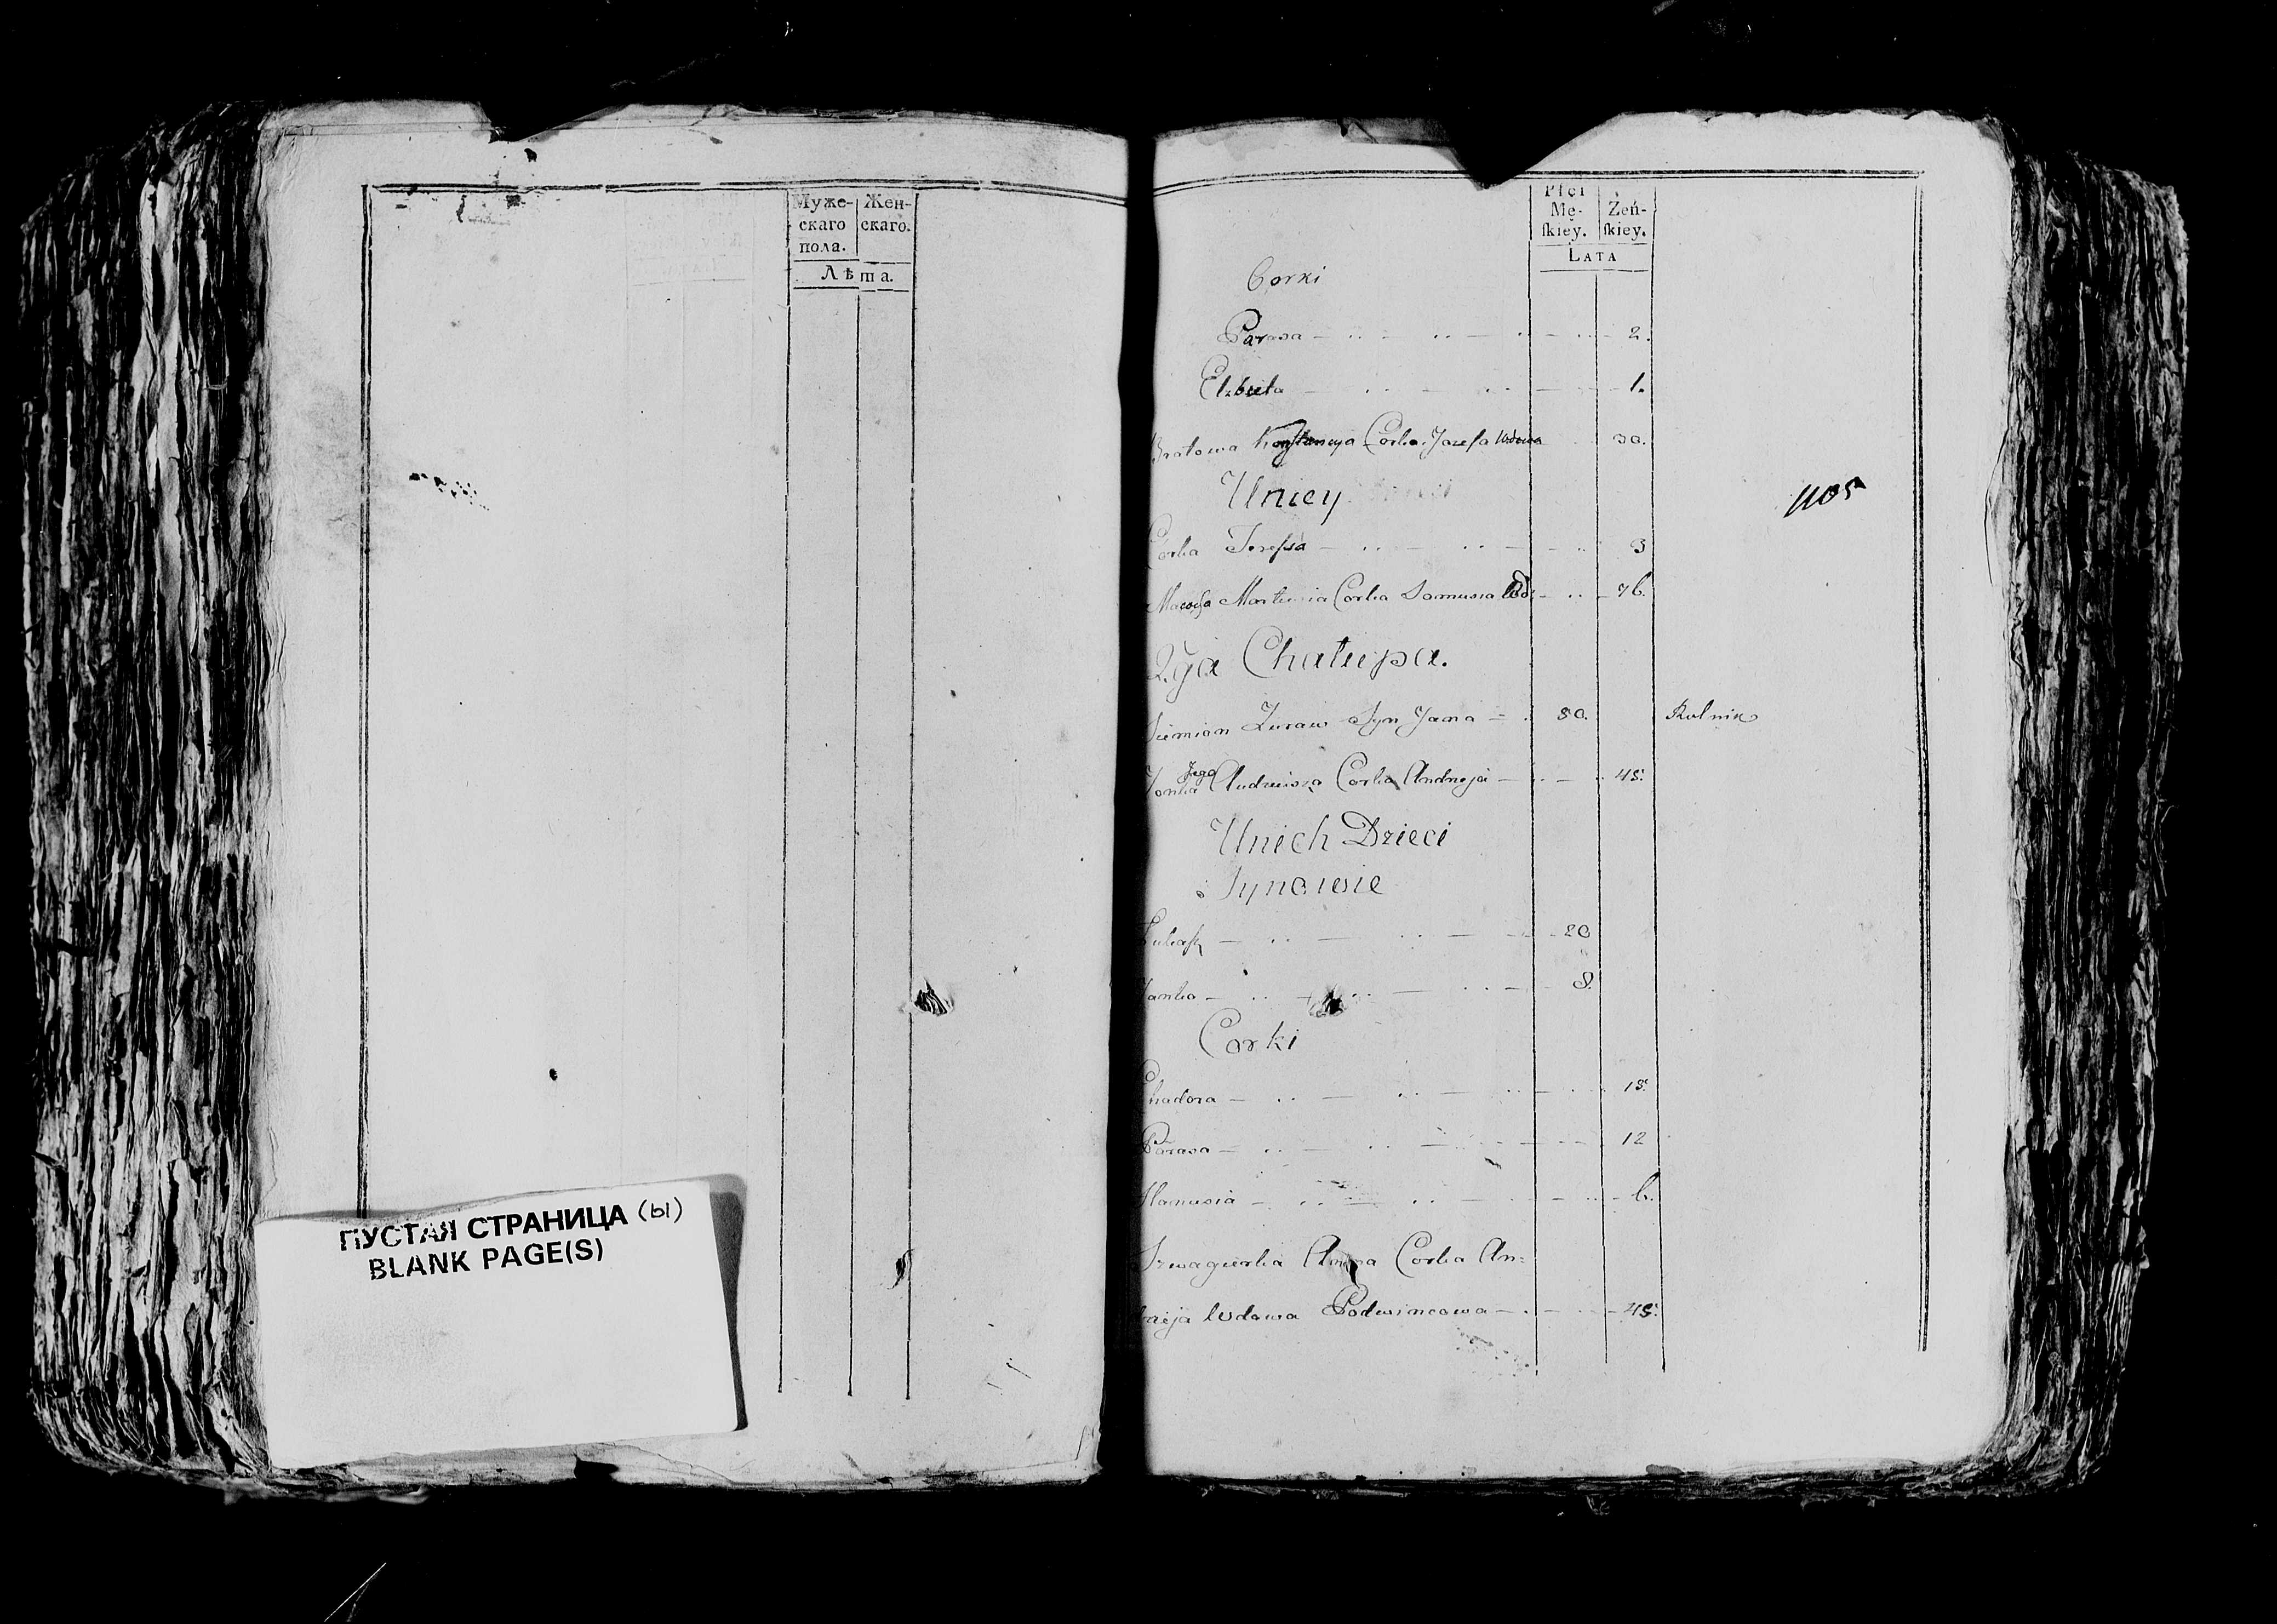 Муже-
скаго
пола.
Жен-
скаго.
Лѣта.
ПУСТАЯ СТРАНИЦА (Ы)
BLANK PAGE(S)
Płci
Mę-
ſkiey.
Żeń-
ſkiey.
LATA
Corki
Parasa 2.
Elzbieta 1.
Bratowa Konstancya Corka Jozefa Wdowa 30.
Uniey
1105
Corka Teressa 3
Macocha Corka Samusia Wd. 76.
2ga Chałupa.
Siemion Zuraw Syn Jana 50. Rolnik
Zonka Jego Ludwisia Corka Andrieja 45.
Unich Dzieci
Synowie
Łukasz 20
Janka 8.
Corki
Chadora 15.
Parasa 12
Hanusia 6.
Szwagierka Anna Corka An=
Wdowa 45.